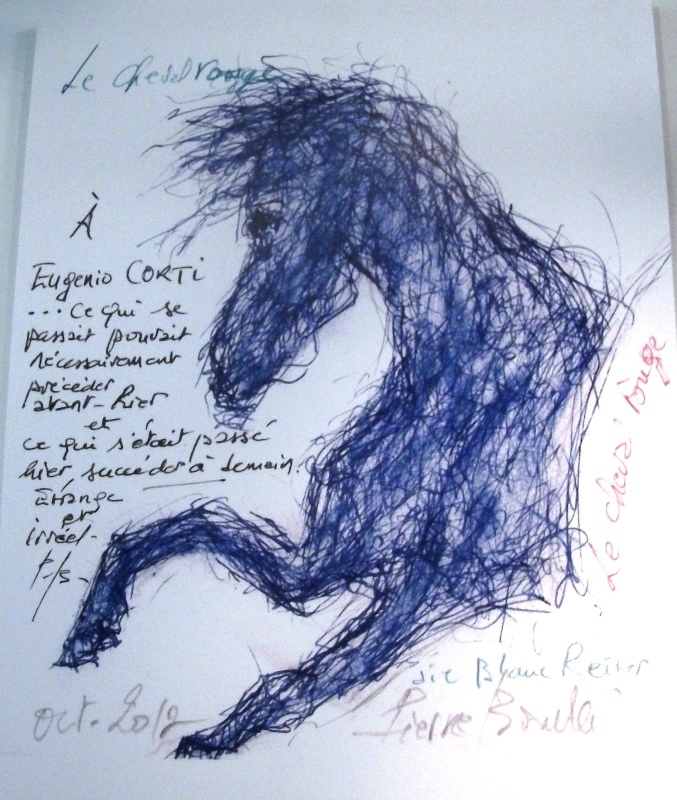 Le cheval rouge
À
Eugenio CORTI
... Ce qui se
passait pouvait
nécessairement
précéder
avant-hier
et
ce qui s'était passé
hier, succéder à demain.
Étrange
et
irréel.
P.B.
Le cheval rouge
Blaue Reiter
oct. 2012
Pierre